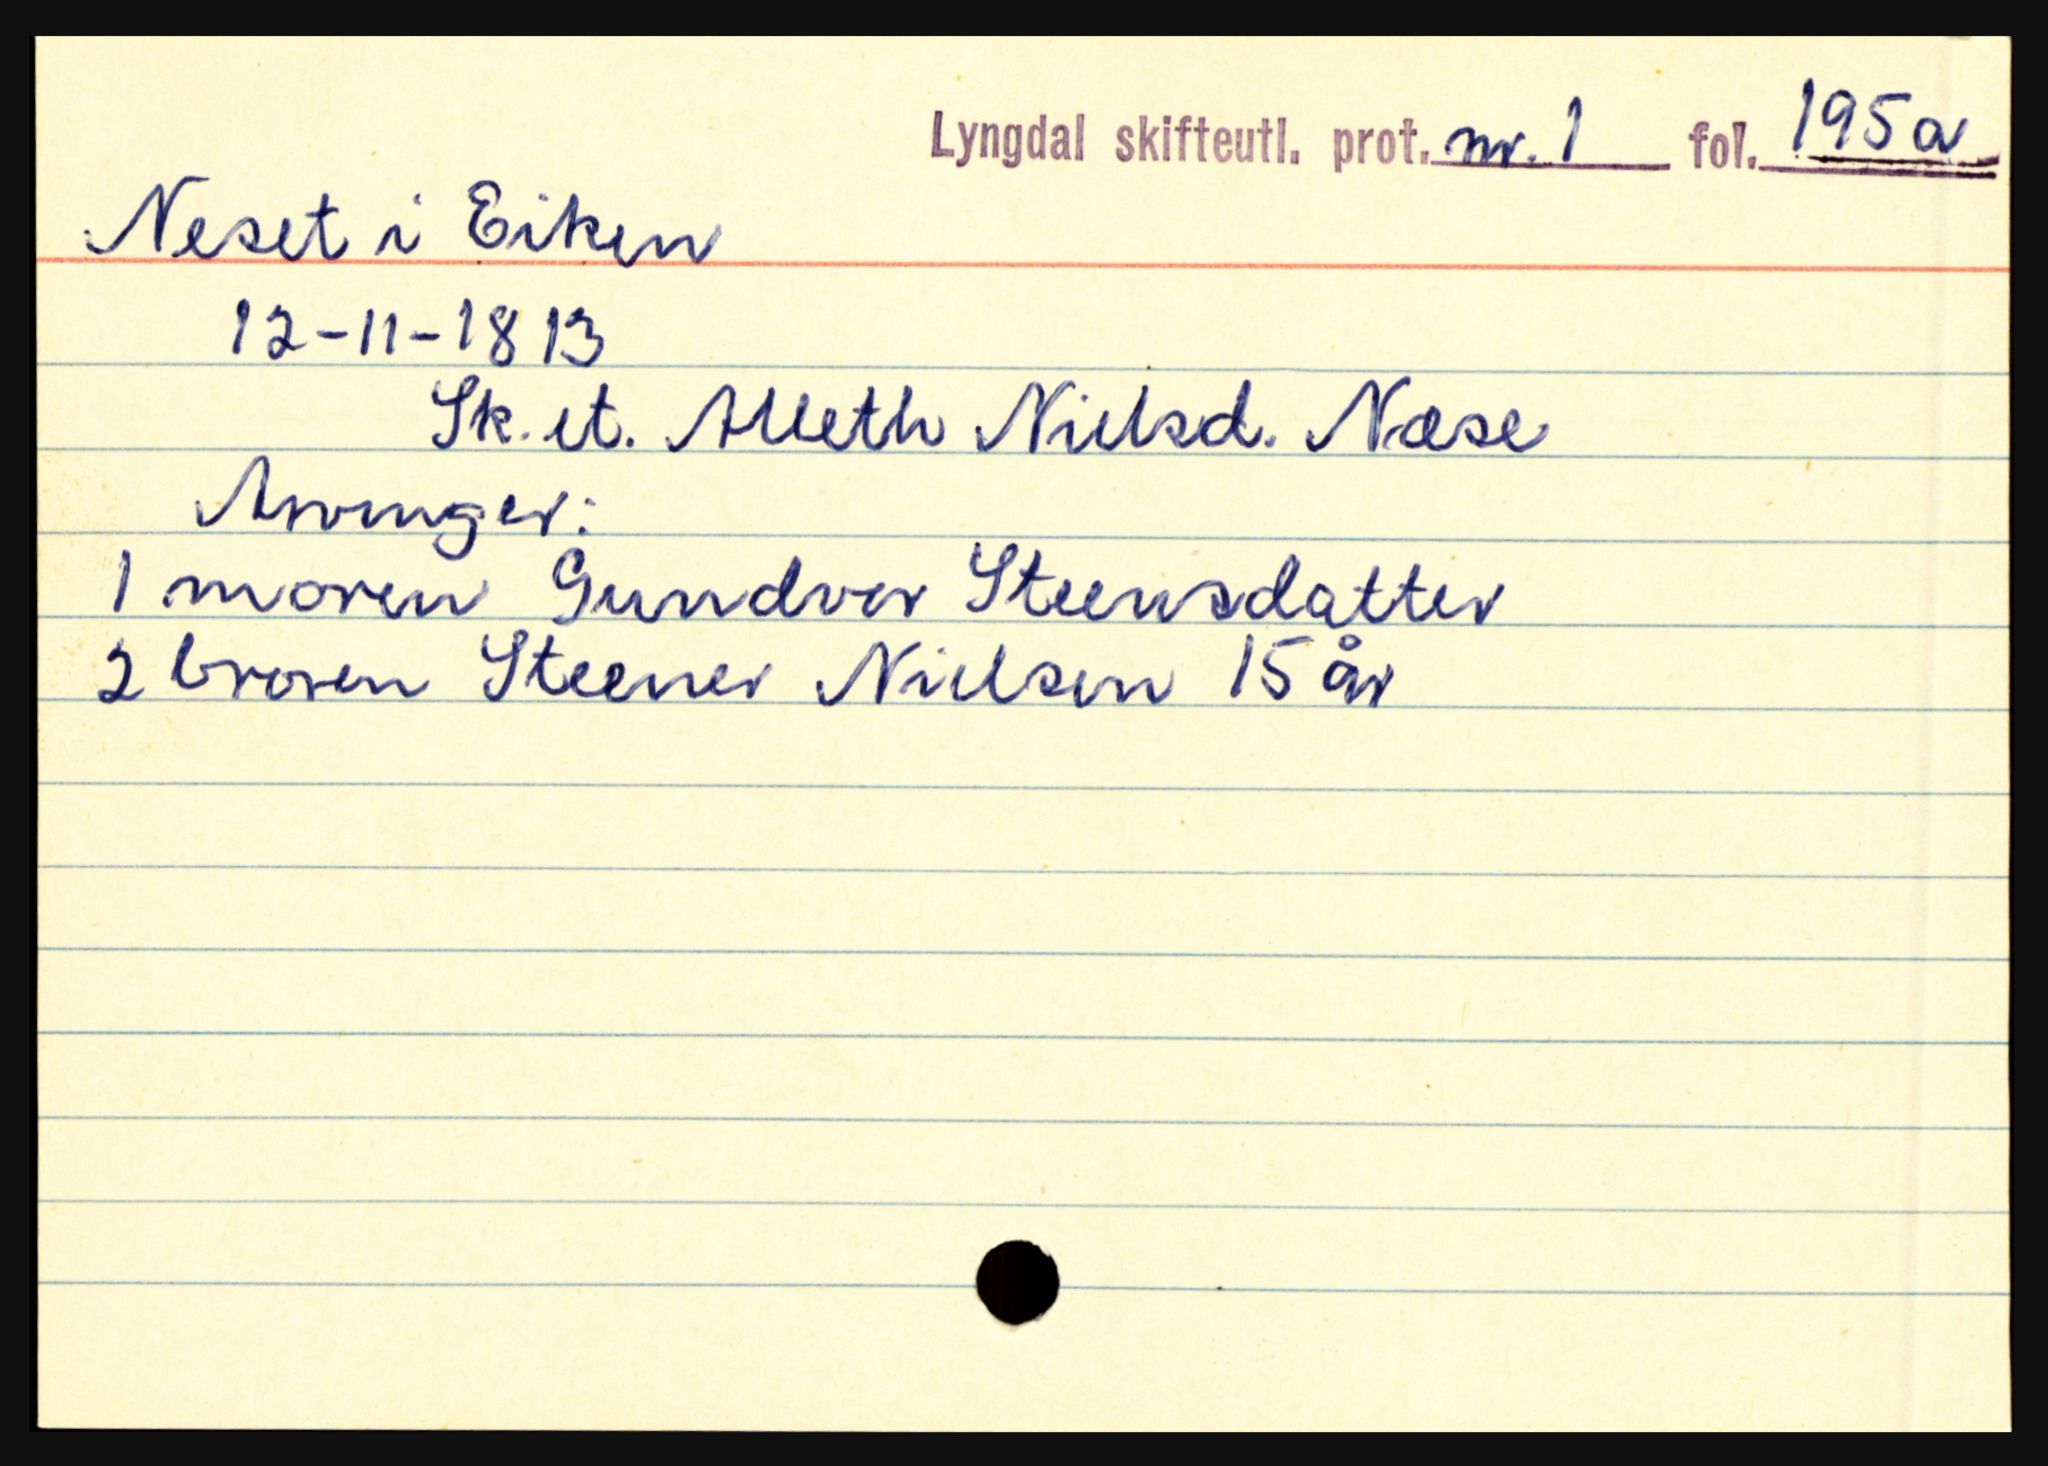 Lyngdal skifteutl. prot. nr. 1 fol. 195a
Neset i Eiken
12-11-1813
Sk. et. Alleth Nielsd. Næse
Arvinger:
1 moren Gundvor Steensdatter
2 broren Steener Nielsen 15 år